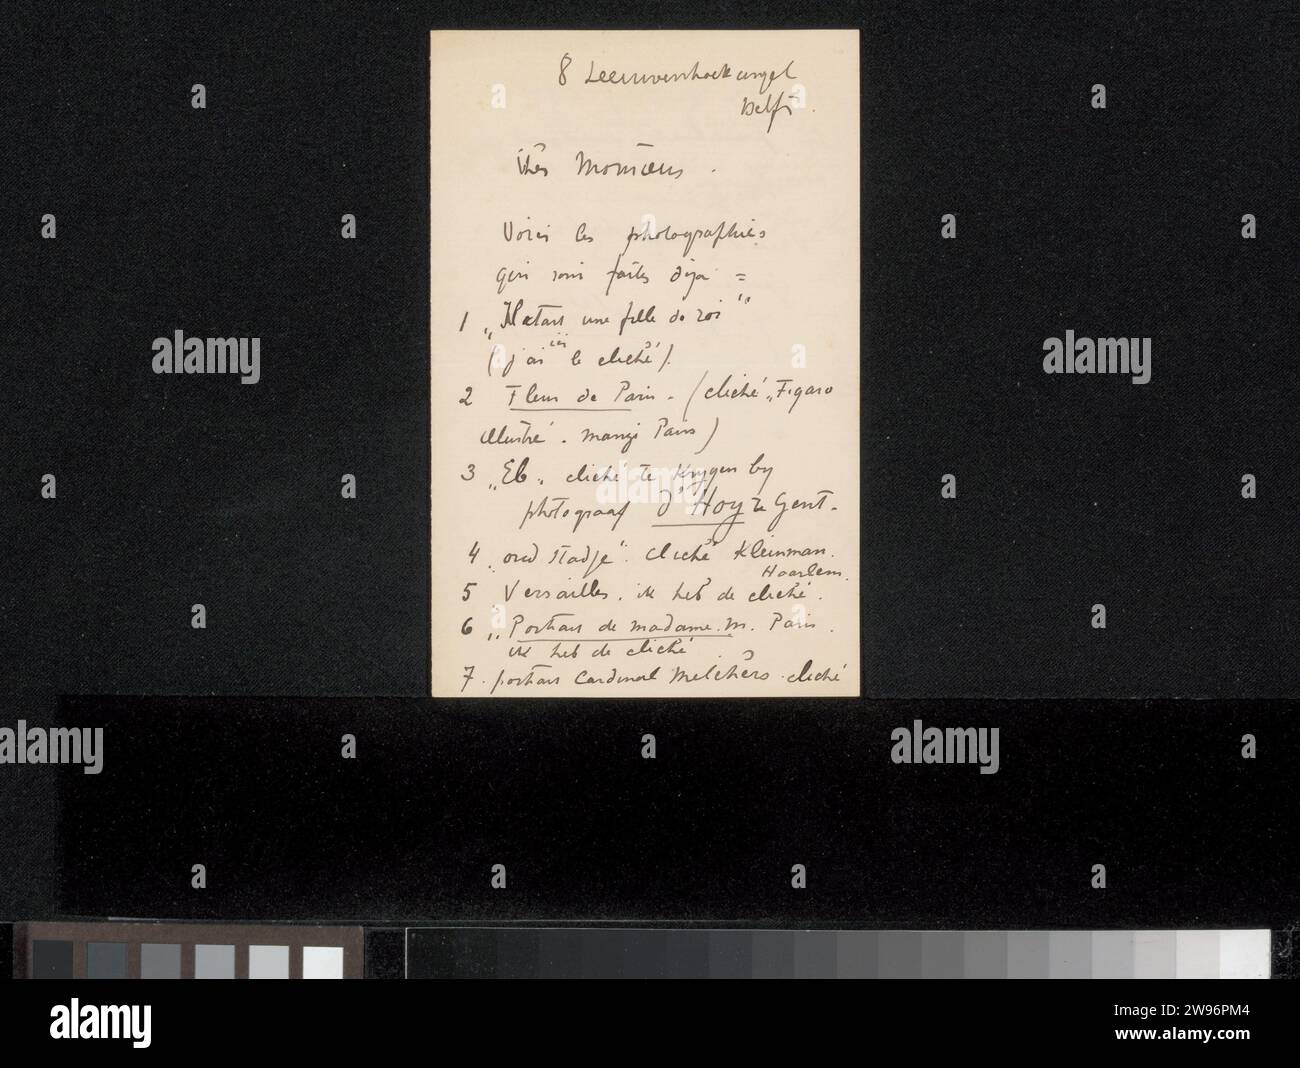 8 Leeuwenhoek singel
Delft
Très Monsieur.
Voici les photographies
qui sont faites déja =
1 „Il etait une fille de roi"
(j'ai ici le cliché).
2 Fleur de Paris - (cliché „Figaro
illustré - manzi Paris)
3 „Eb„ cliché te krygen by
photograaf d'Hoy te Gent -
4 „oud stadje". cliché Kleinman.
Haarlem.
5 Versailles. ik heb de cliché.
6 „Portrait de madame. M. Paris.
ik heb de cliché
7. portrait Cardinal Melchers. cliché
alamy
alamy
alamy
alamy
alamy
alamy
Image ID: 2W96PM4
www.alamy.com